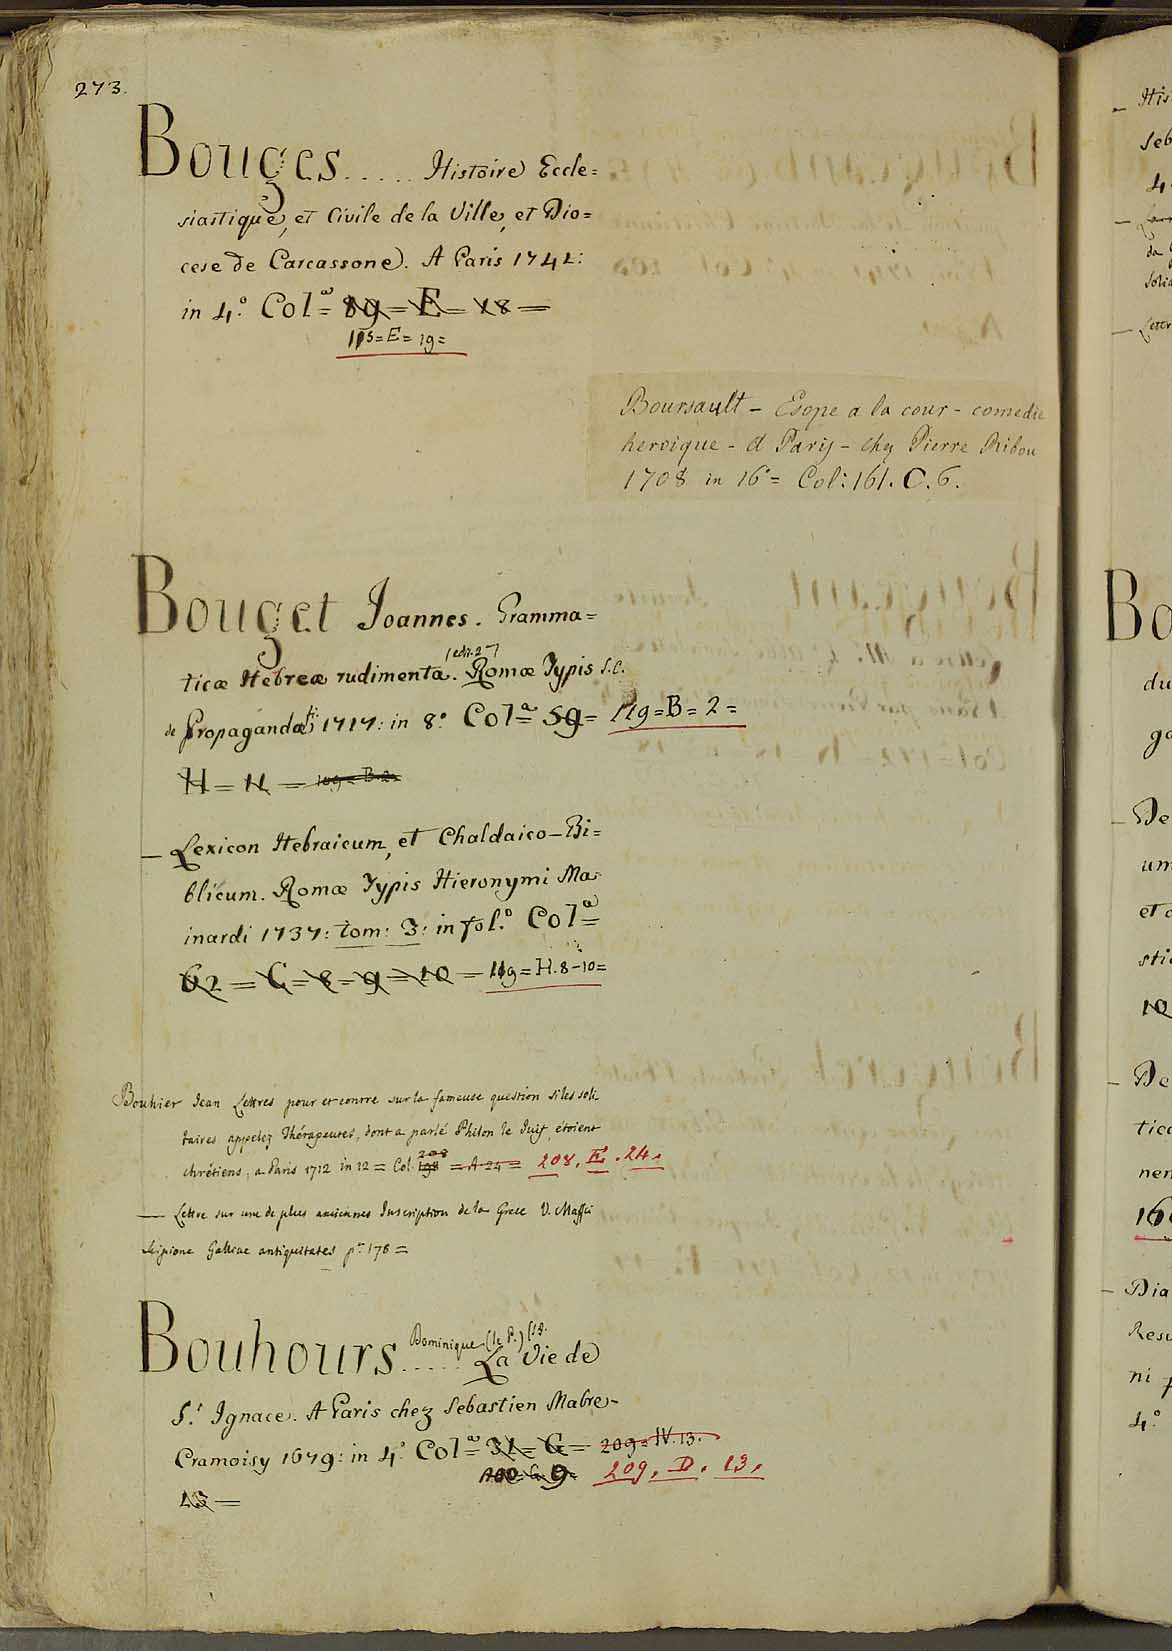 273.
Bouges..... Histoire Eccle=
siastique, et Civile de la Ville, et Dio=
cese de Carcassone. A Paris 1741:
in 4.° Col.ª 89 = E = 18 =
115 = E = 19 =
Boursault - Esope a la cour - comedie
heroique - a Paris - chez Pierre Ribou
1708 in 16° = Col: 161. C. 6.
Bouget Joannes. Gramma=
(edit. 2ª)
ticæ Hebreæ rudimenta. Romæ Typis S.C.
de Propagandâ 1717: in 8.° Col.ª 59 = 119 = B = 2 =
H = H = 109 = B. 2.
— Lexicon Hebraicum, et Chaldaico-Bi=
blicum. Romæ Typis Hieronymi Ma-
inardi 1737: tom: 3: in fol.° Col.ª
62 = C = 8 = 9 = 10 = 119 = H. 8-10 =
Bouhier Jean Lettres pour et contre sur la fameuse question si les soli-
taires appelez Thérapeutes, dont a parlé Philon le Juif, étoient
208
chrétiens; a Paris 1712 in 12 = Col. 198 = A 24 = 208. E. 24.
— Lettre sur une de plus anciennes Inscription de la Grece V. Maffei
Scipione Galliae antiquitates p. 178 =
Dominique (le P.)
Bouhours..... La Vie de
S.t Ignace. A Paris chez Sebastien Mabre-
Cramoisy 1679: in 4.° Col.ª 31 = G = 209 = IV. 13.
100 = G 9 = 209. D. 13.
15 =